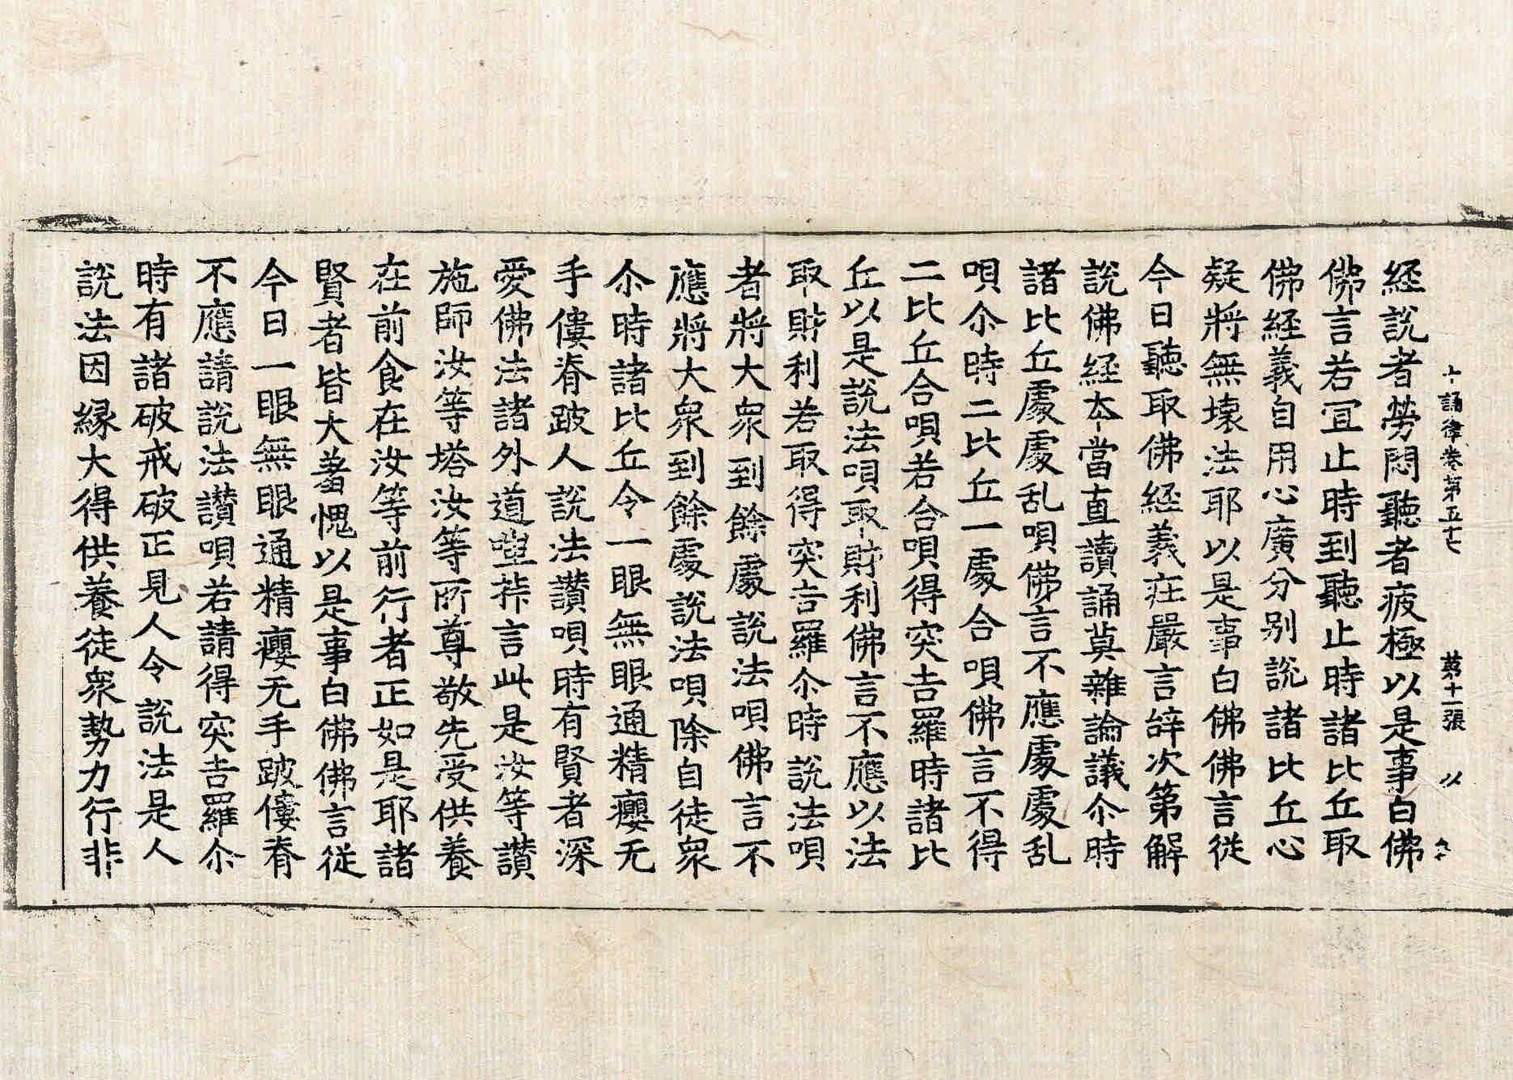 十誦律卷第五十七 苐十一張 以
経說者勞悶聽者疲極以是事白佛
佛言若冝止時到聽止時諸比丘取
佛経義自用心廣分别說諸比丘心
疑將無壊法耶以是事白佛佛言従
今日聽取佛経義荘嚴言辝次第解
說佛経夲當直讀誦莫雜論議尒時
諸比丘處處乱唄佛言不應處處乱
唄尒時二比丘一處合唄佛言不得
二比丘合唄若合唄得突吉羅時諸比
丘以是說法唄取財利佛言不應以法
取財利若取得突吉羅尒時說法唄
者將大衆到餘處說法唄佛言不
應將大衆到餘處說法唄除自徒衆
尒時諸比丘令一眼無眼通精癭无
手僂脊跛人說法讃唄時有賢者深
愛佛法諸外道言此是汝等讃
施師汝等塔汝等所尊敬先受供養
在前食在汝等前行者正如是耶諸
賢者皆大慙愧以是事白佛佛言従
今日一眼無眼通精癭无手跛僂脊
不應請說法讃唄若請得突吉羅尒
時有諸破戒破正見人令說法是人
說法因縁大得供養徒衆勢力行非